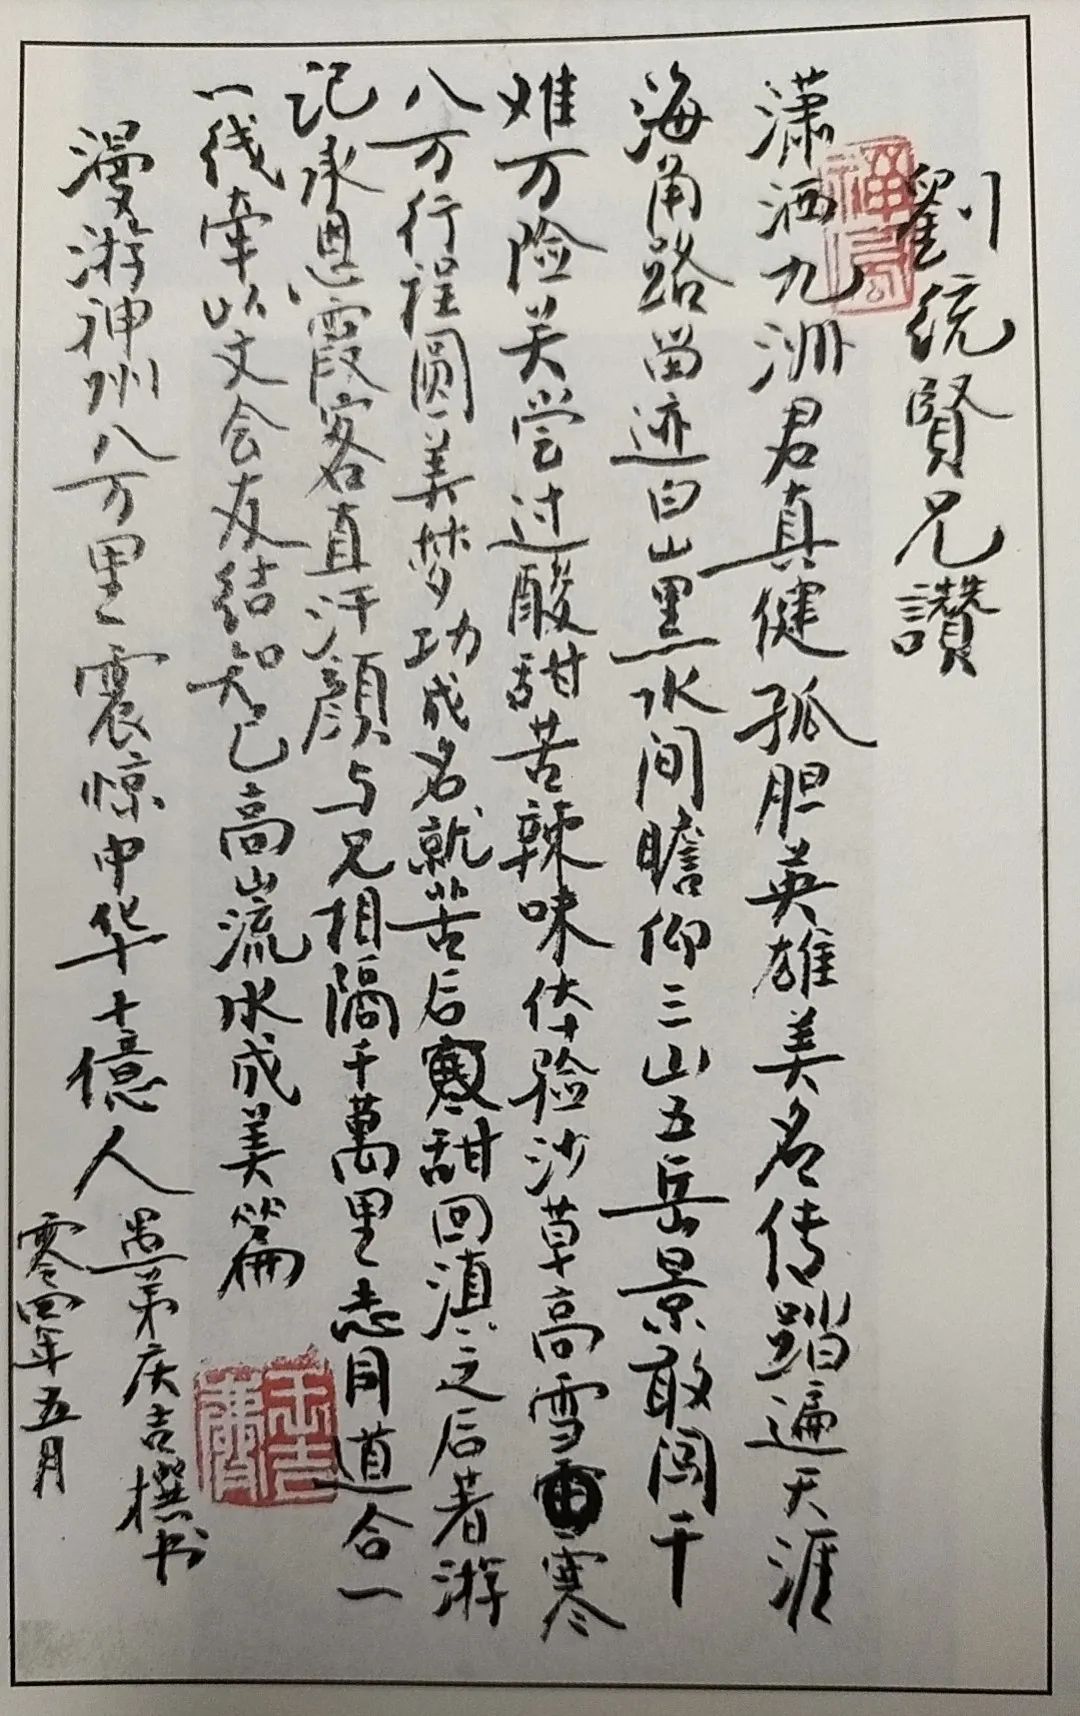 劉統賢兄讚
潇洒九洲君真健孤胆英雄美名传踏遍天涯
海角路留迹白山黑水间瞻仰三山五岳景敢闯千
难万险关尝过酸甜苦辣味体验沙草高雪寒
八万行程圆美梦功成名就苦后甜回滇之后著游
记承恩霞客直汗颜与兄相隔千萬里志同道合一
一线牵以文会友结知己高山流水成美篇
漫游神州八万里震惊中华十億人
愚弟庆吉撰书
零四年五月